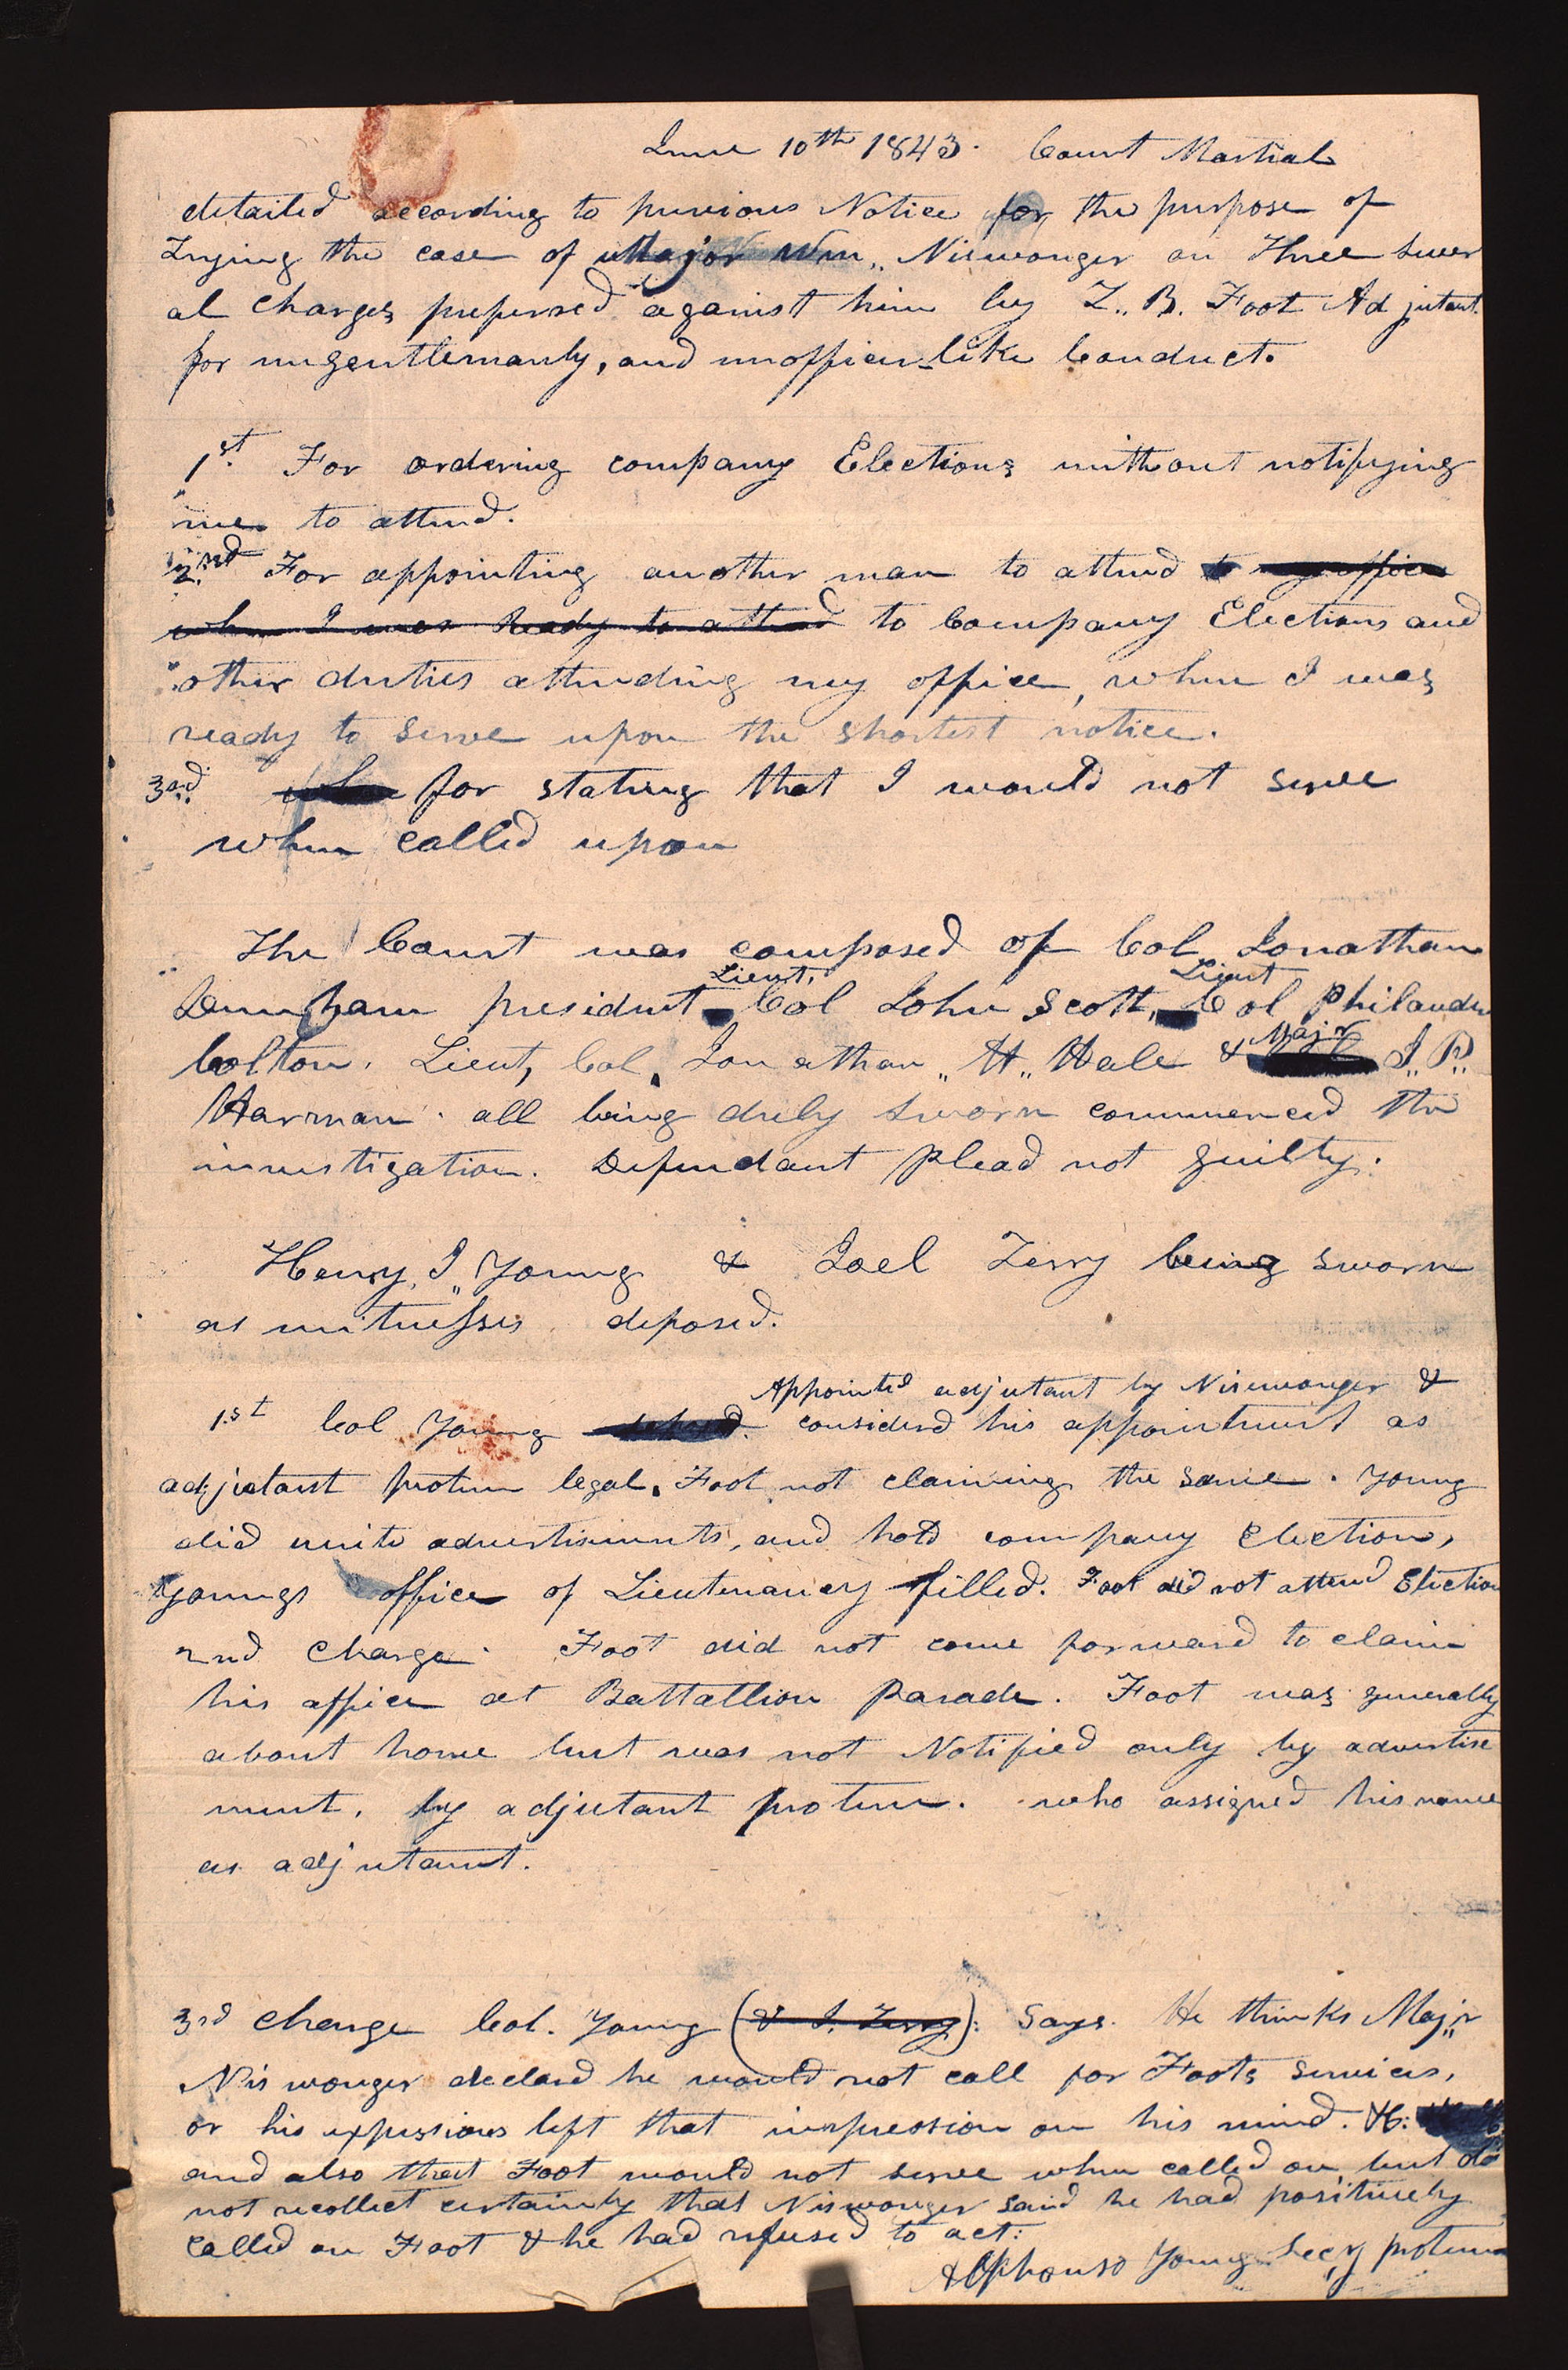 June 10th 1843. Court Martial
detailed according to previous Notice for the purpose of
Trying the case of Major Wm,, Niswonger on Three sever
al Charges prefered against him by Z,, B. Foot Adjutant.
for ungentlemanly, and unofficer-like Conduct.
1st. For ordering company Elections without notifying
me to attend.
2nd For appointing another man to attend to my office
when I was ready to attend to Company Elections and
other duties attending my office, when I was
ready to serve upon the shortest notice.
3rd. for stating that I would not serve
when called upon
The Court was composed of Col Jonathan
Lieut, Lieut
Dunham president Col John Scott, Col Philander
Majr
Colton. Lieut, Col. Jonathan,, H,, Hale & J,, P,,
Harman. all being duly sworn commenced the
investigation. Defendant plead not guilty.
Henry,, J,, Young & Joel Terry being sworn
as witnesses deposed.
Appointed adjutant by Niswonger &
1st Col Young considerd his appointment as
adjutant protem legal. Foot not claiming the same. Young
did write advertisments, and hold company Election,
Youngs office of Lieutenancy filled. Foot did not attend Election
2nd Charge. Foot did not come forward to claim
his office at Battallion Parade. Foot was generally
about home but was not Notified only by advertise
ment, by adjutant protem. who assigned his name
as adjutant.
3rd Charge Col. Young (& J. Terry): Says. He thinks Maj,,r
Niswonger declard he would not call for Foots services,
or his expressions left that impression on his mind. &c:
and also that Foot would not serve when called on, but do
not recollect certainly that Niswonger said he had positively
called on Foot & he had refused to act:
Alphonso Young Secy protem